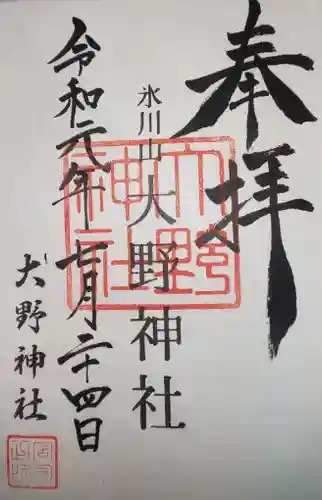 奉拝
氷川山 大野神社
大野
神社
令和元年
月二十四日
大野神社